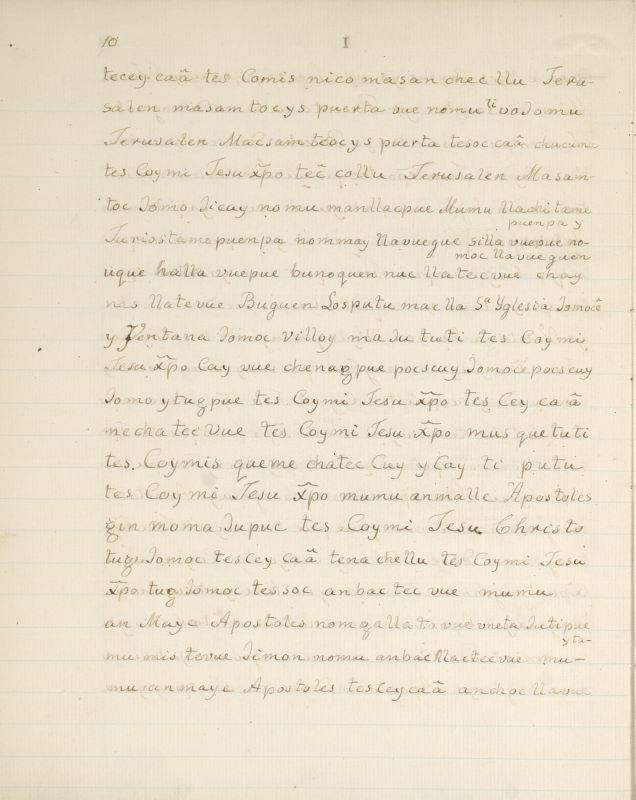 10 I
tecey caã tes Comis nico masan chec llu Jeru-
salen masamtocys puerta vue nomu ti vo Jomu
Jerusalen Macsamteocys puerta tesoc caã chucuma
tes Coymi Jesu xp̃o tec̃ collu Jerusalen Masam-
toc Jomo Jicay nomu manllacpue Mumu llachitame
puenpa y
Juriostamepuenpa nommay llavuegue silla vuepue no-
moc llavueguen
uque halla vuepue bunoquen nuc llatecvue chay
nas llatevue Buguen Losputu mac lla Sª Yglesia Jomoc̃
y Ventana Jomoc villoy ma Ju tuti tes Coymi
Jesu xp̃o Cay vue chenagpue pocscuy Jomoc pocscuy
Jomo ytugpue tes Coymi Jesu xp̃o tes Cey ca ã
mechatec vue tes Coymi Jesu xp̃o mus que tuti
tes. Coymis queme chatec Cuy y Cay ti putu
tes Coymi Jesu xp̃o mumu anmalle Apostoles
gin moma Jupue tes Coymi Jesu Christo
tug Jomoc tescey caã tenachellu tes Coymi Jesu
xp̃o tug Jomoc tessoc anbac tec vue mumu
an Maye Apostoles nomgallati vue vneta Jutipue
yta-
mu mis tevue Jimon nomu anbacllactecvue mu-
mu anmaye Apostoles tesceycaã anchoc llavue